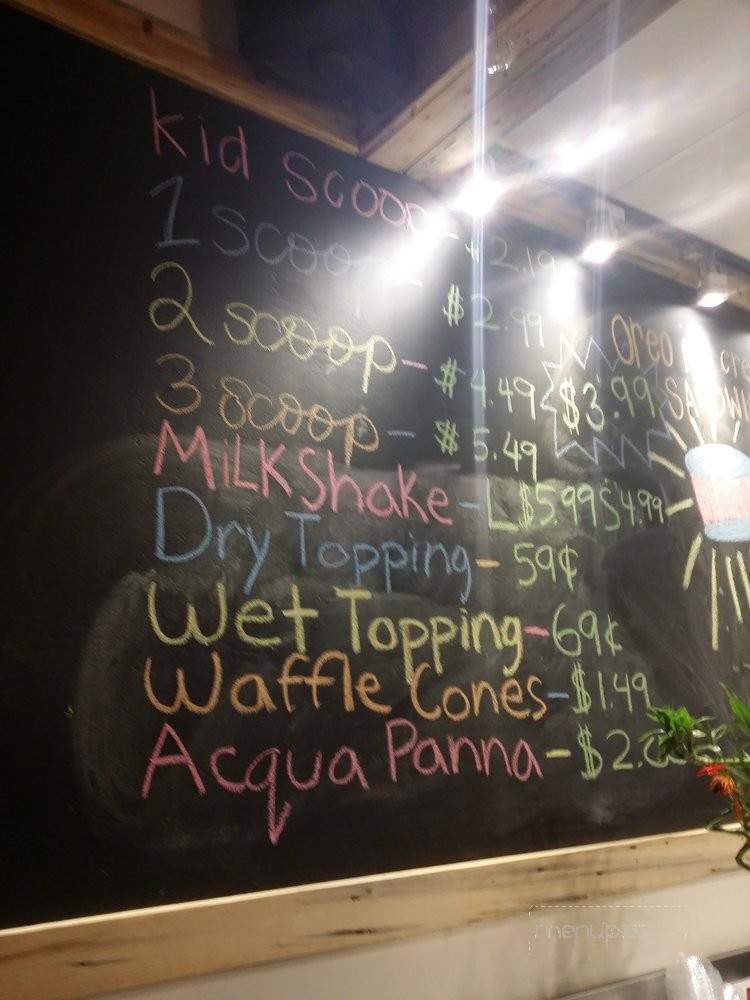 kid scoop - $2.19
1 scoop - $2.99
2 scoop - $4.49
3 scoop - $5.49
MiLKShake - L $5.99 S 4.99
Dry Topping - 59¢
Wet Topping - 69¢
Waffle Cones - $1.49
Acqua Panna - $2.
Oreo
$3.99
menupix